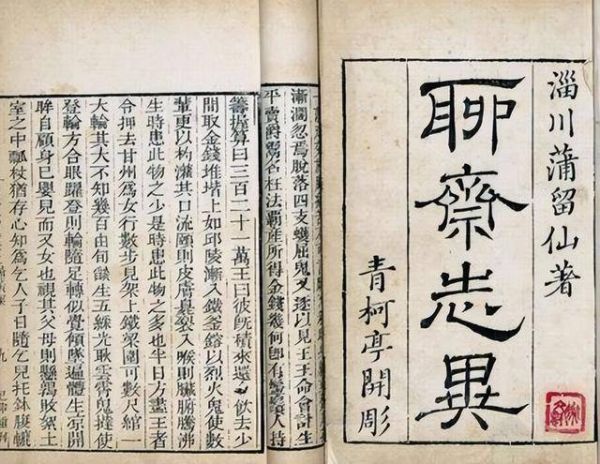 淄川蒲留仙著
聊齋志異
青柯亭開彫
漸濶忽焉脫落四支蠖屈鬼又逐以見王王命會計生
平賣爵鬻名枉法覇產所得金錢幾何卽有鬡鬚人持
籌握算曰三百二十一萬王曰彼旣積來還令飲去少
間取金錢堆堦上如邱陵漸入鐵釜鎔以烈火鬼使數
輩更以杓灌其口流頤則皮膚臭裂入喉則臟腑騰沸
生時患此物之少是時患此物之多也半日方盡王者
令押去甘州爲女行數步見架上鐵梁圍可數尺綰一
大輪其大不知幾百由旬燄生五綵光耿雲霄鬼撻使
登輪方合眼躍登則輪隨足轉似覺傾墜遍體生凉開
眸自顧身已嬰兒而又女也視其父母則懸鶉敗絮土
室之中瓢杖猶存心知爲乞人子日隨乞兒托鉢腹轆